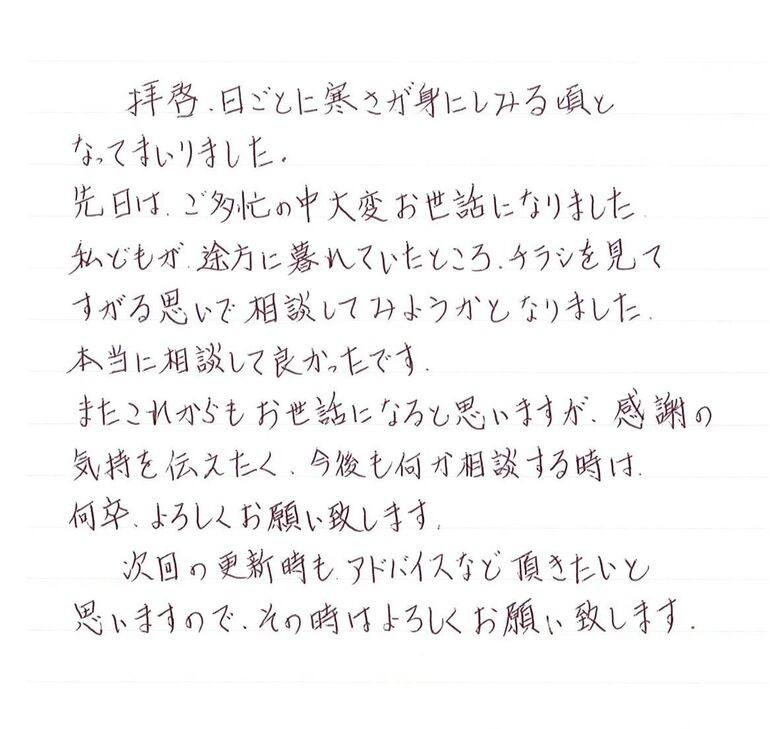 拝啓、日ごとに寒さが身にしみる頃と
なってまいりました。
先日は、ご多忙の中大変お世話になりました。
私どもが、途方に暮れていたところ、チラシを見て
すがる思いで相談してみようかとなりました。
本当に相談して良かったです。
またこれからもお世話になると思いますが、感謝の
気持を伝えたく、今後も何か相談する時は、
何卒、よろしくお願い致します。
次回の更新時も、アドバイスなど頂きたいと
思いますので、その時はよろしくお願い致します。